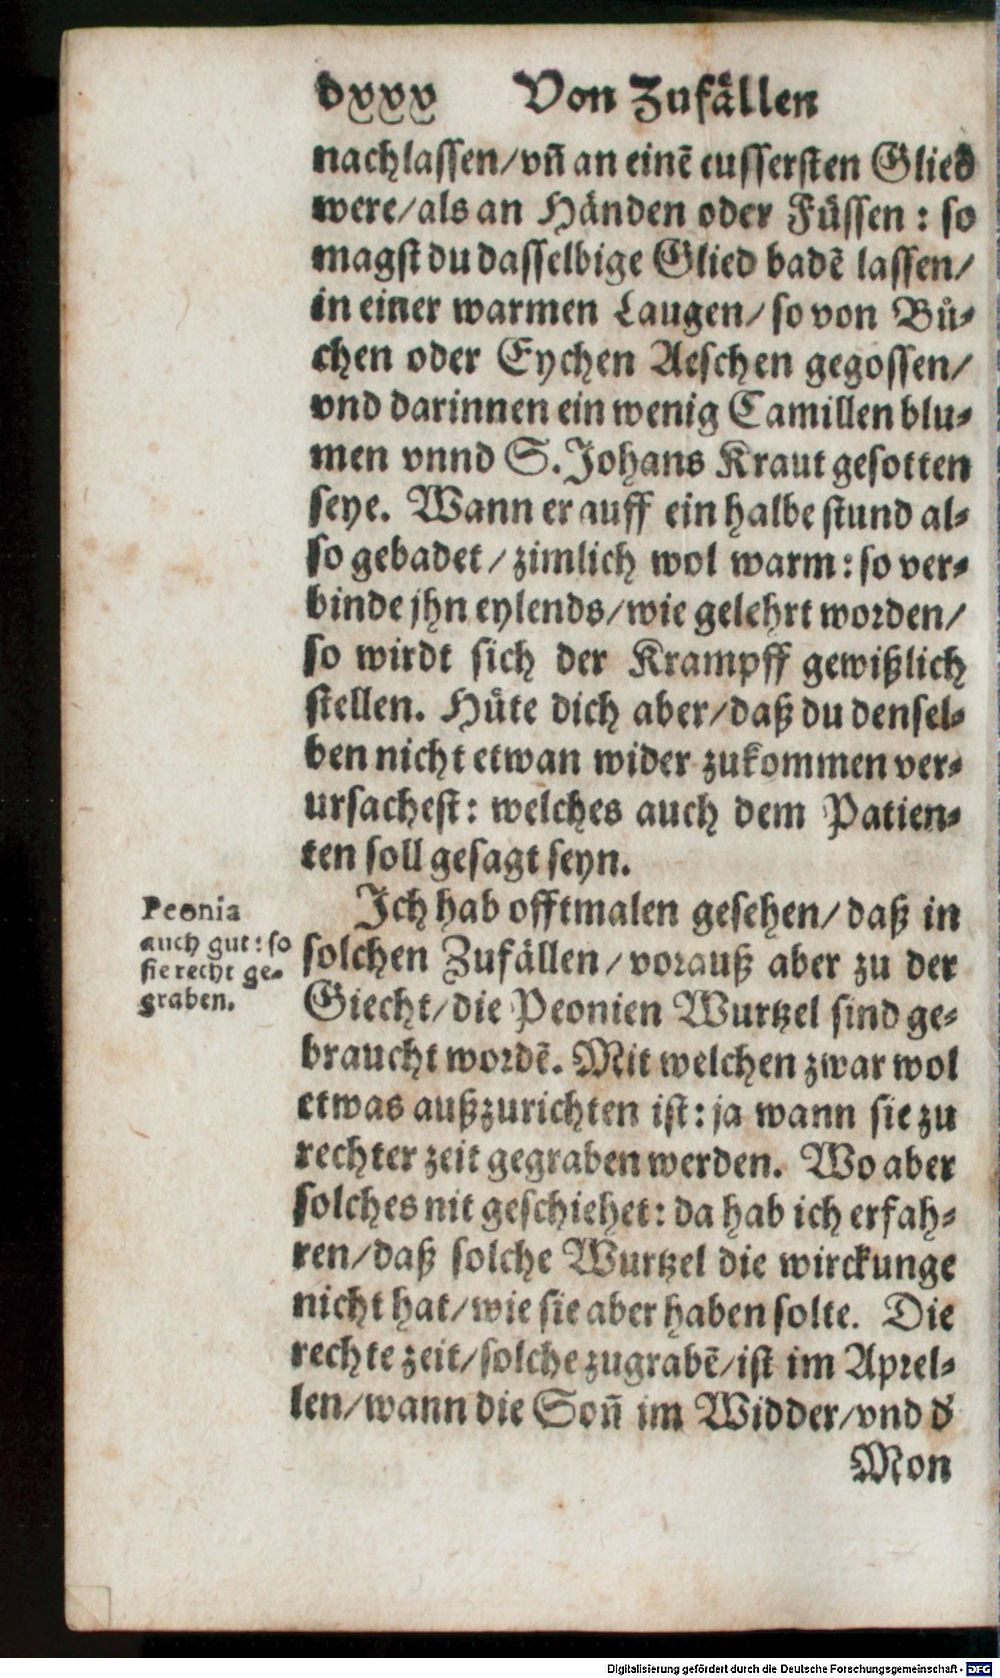 dxxx Von Zufällen
nachlassen/vñ an einẽ eussersten Glied
were/als an Händen oder Füssen: so
magst du dasselbige Glied badẽ lassen/
in einer warmen Laugen/so von Bů-
chen oder Eychen Aeschen gegossen/
vnd darinnen ein wenig Camillen blu-
men vnnd S. Johans Kraut gesotten
seye. Wann er auff ein halbe stund al-
so gebadet/zimlich wol warm: so ver-
binde jhn eylends/wie gelehrt worden/
so wirdt sich der Krampff gewißlich
stellen. Hüte dich aber/daß du densel-
ben nicht etwan wider zukommen ver-
ursachest: welches auch dem Patien-
ten soll gesagt seyn.
Peonia
auch gut: so
sie recht ge-
graben.
Ich hab offtmalen gesehen/daß in
solchen Zufällen/vorauß aber zu der
Giecht/die Peonien Wurtzel sind ge-
braucht wordẽ. Mit welchen zwar wol
etwas außzurichten ist: ja wann sie zu
rechter zeit gegraben werden. Wo aber
solches nit geschiehet: da hab ich erfah-
ren/daß solche Wurtzel die wirckunge
nicht hat/wie sie aber haben solte. Die
rechte zeit/solche zugrabẽ/ist im Aprel-
len/wann die Soñ im Widder/vnd d'
Mon
Digitalisierung gefördert durch die Deutsche Forschungsgemeinschaft - DFG